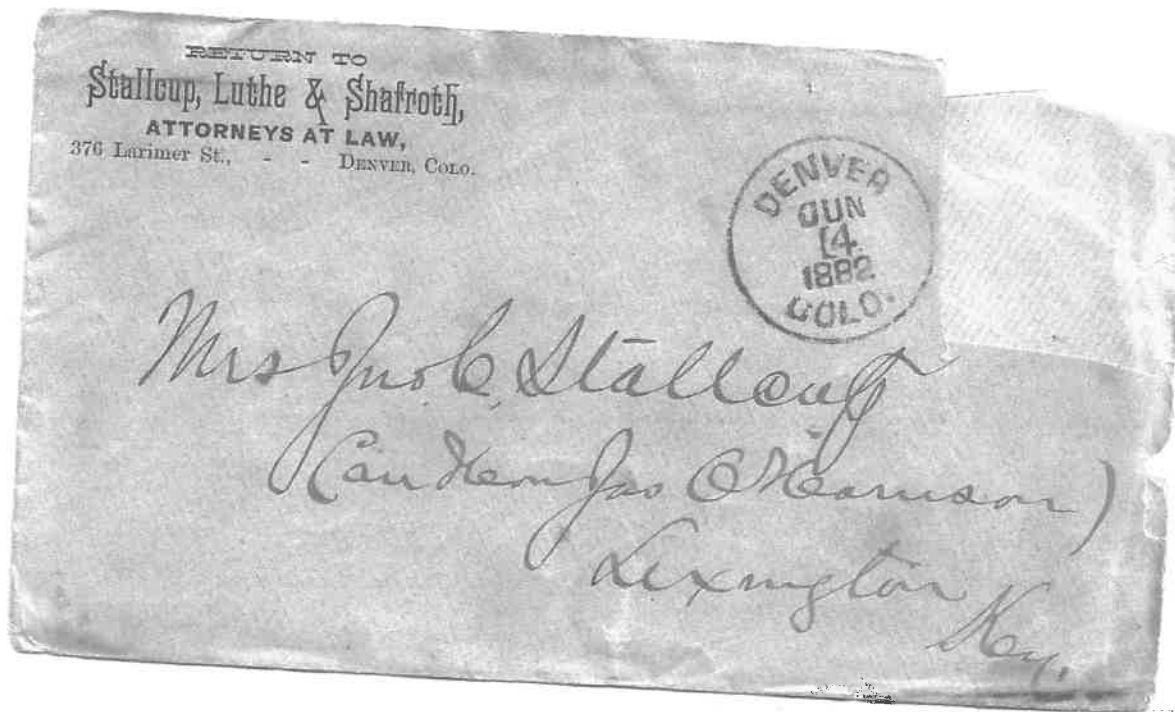 RETURN TO
Stallcup, Luthe & Shafroth,
ATTORNEYS AT LAW,
376 Larimer St., - - DENVER, COLO.
DENVER
JUN
14
1882
COLO.
Mrs Jno C. Stallcup
(Care Hon Jas O Harrison)
Lexington
Ky.